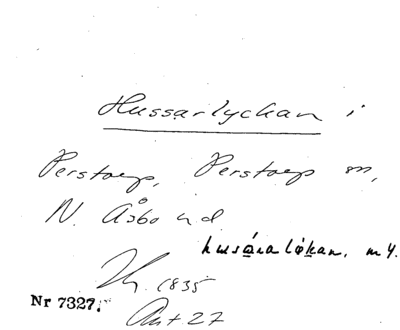 Hussarlyckan i
Perstorp, Perstorp sn,
N. Åsbo hd
husáralökan, m4.
1835
Nr 7327.
Akt 27